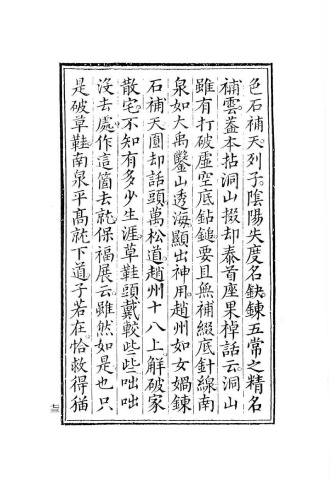 色石補天列子陰陽失度名缺鍊五常之精名
補雲蓋本拈洞山掇却泰首座果棹話云洞山
雖有打破虛空底鉆鎚要且無補綴底針線南
泉如大禹鑿山透海顯出神用趙州如女媧鍊
石補天圓却話頭萬松道趙州十八上解破家
散宅不知有多少生涯草鞋頭戴較些些咄咄
沒去處作這箇去就保福展云雖然如是也只
是破草鞋南泉平高就下道子若在恰救得猫
七三